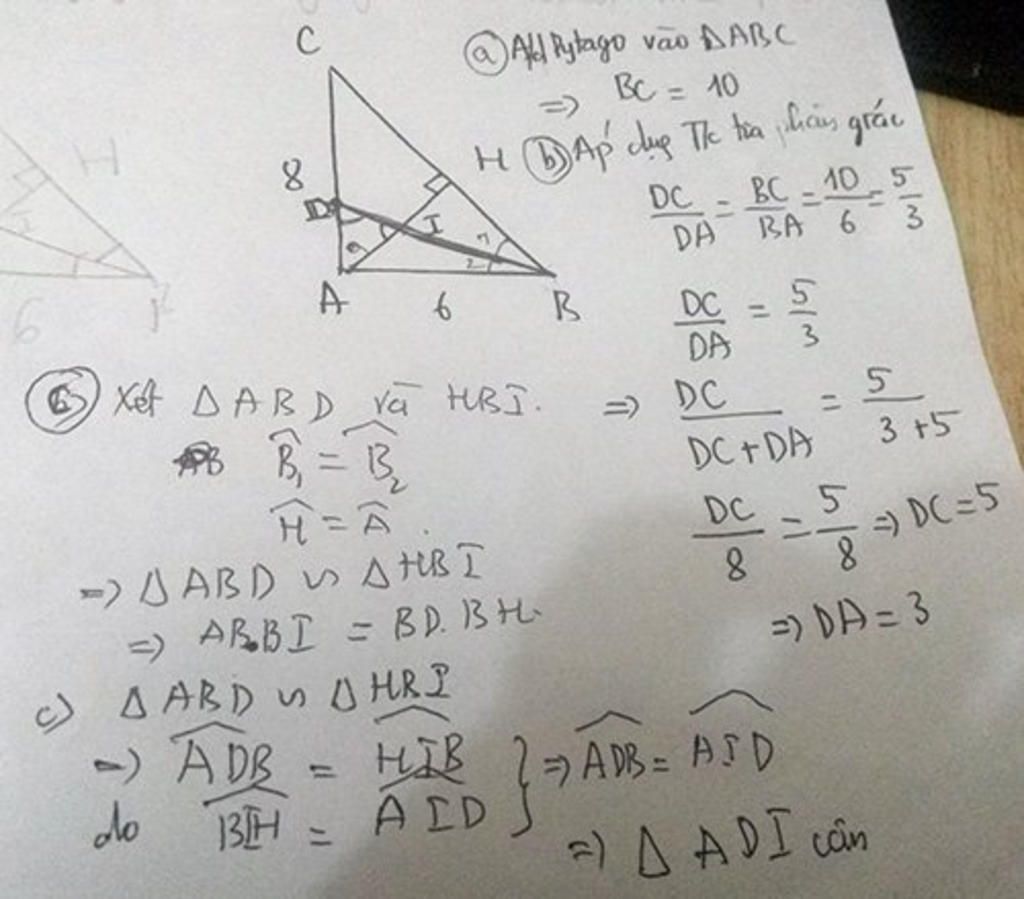 C
8
D
I
H
A
6
B
ⓐ Ad Pytago vào ΔABC
=> BC = 10
ⓑ Áp dụg T/c tia phân giác
DC/DA = BC/BA = 10/6 = 5/3
DC/DA = 5/3
=> DC/(DC+DA) = 5/(3+5)
DC/8 = 5/8 => DC = 5
=> DA = 3
Xét Δ ABD và HBI.
B̂₁ = B̂₂
Ĥ = Â.
=> Δ ABD ∽ Δ HBI
=> AB.BI = BD.BH.
c) Δ ABD ∽ Δ HBI
=> ADB = HIB
do BIH = AID } => ADB = AID
=> Δ ADI cân
H
6